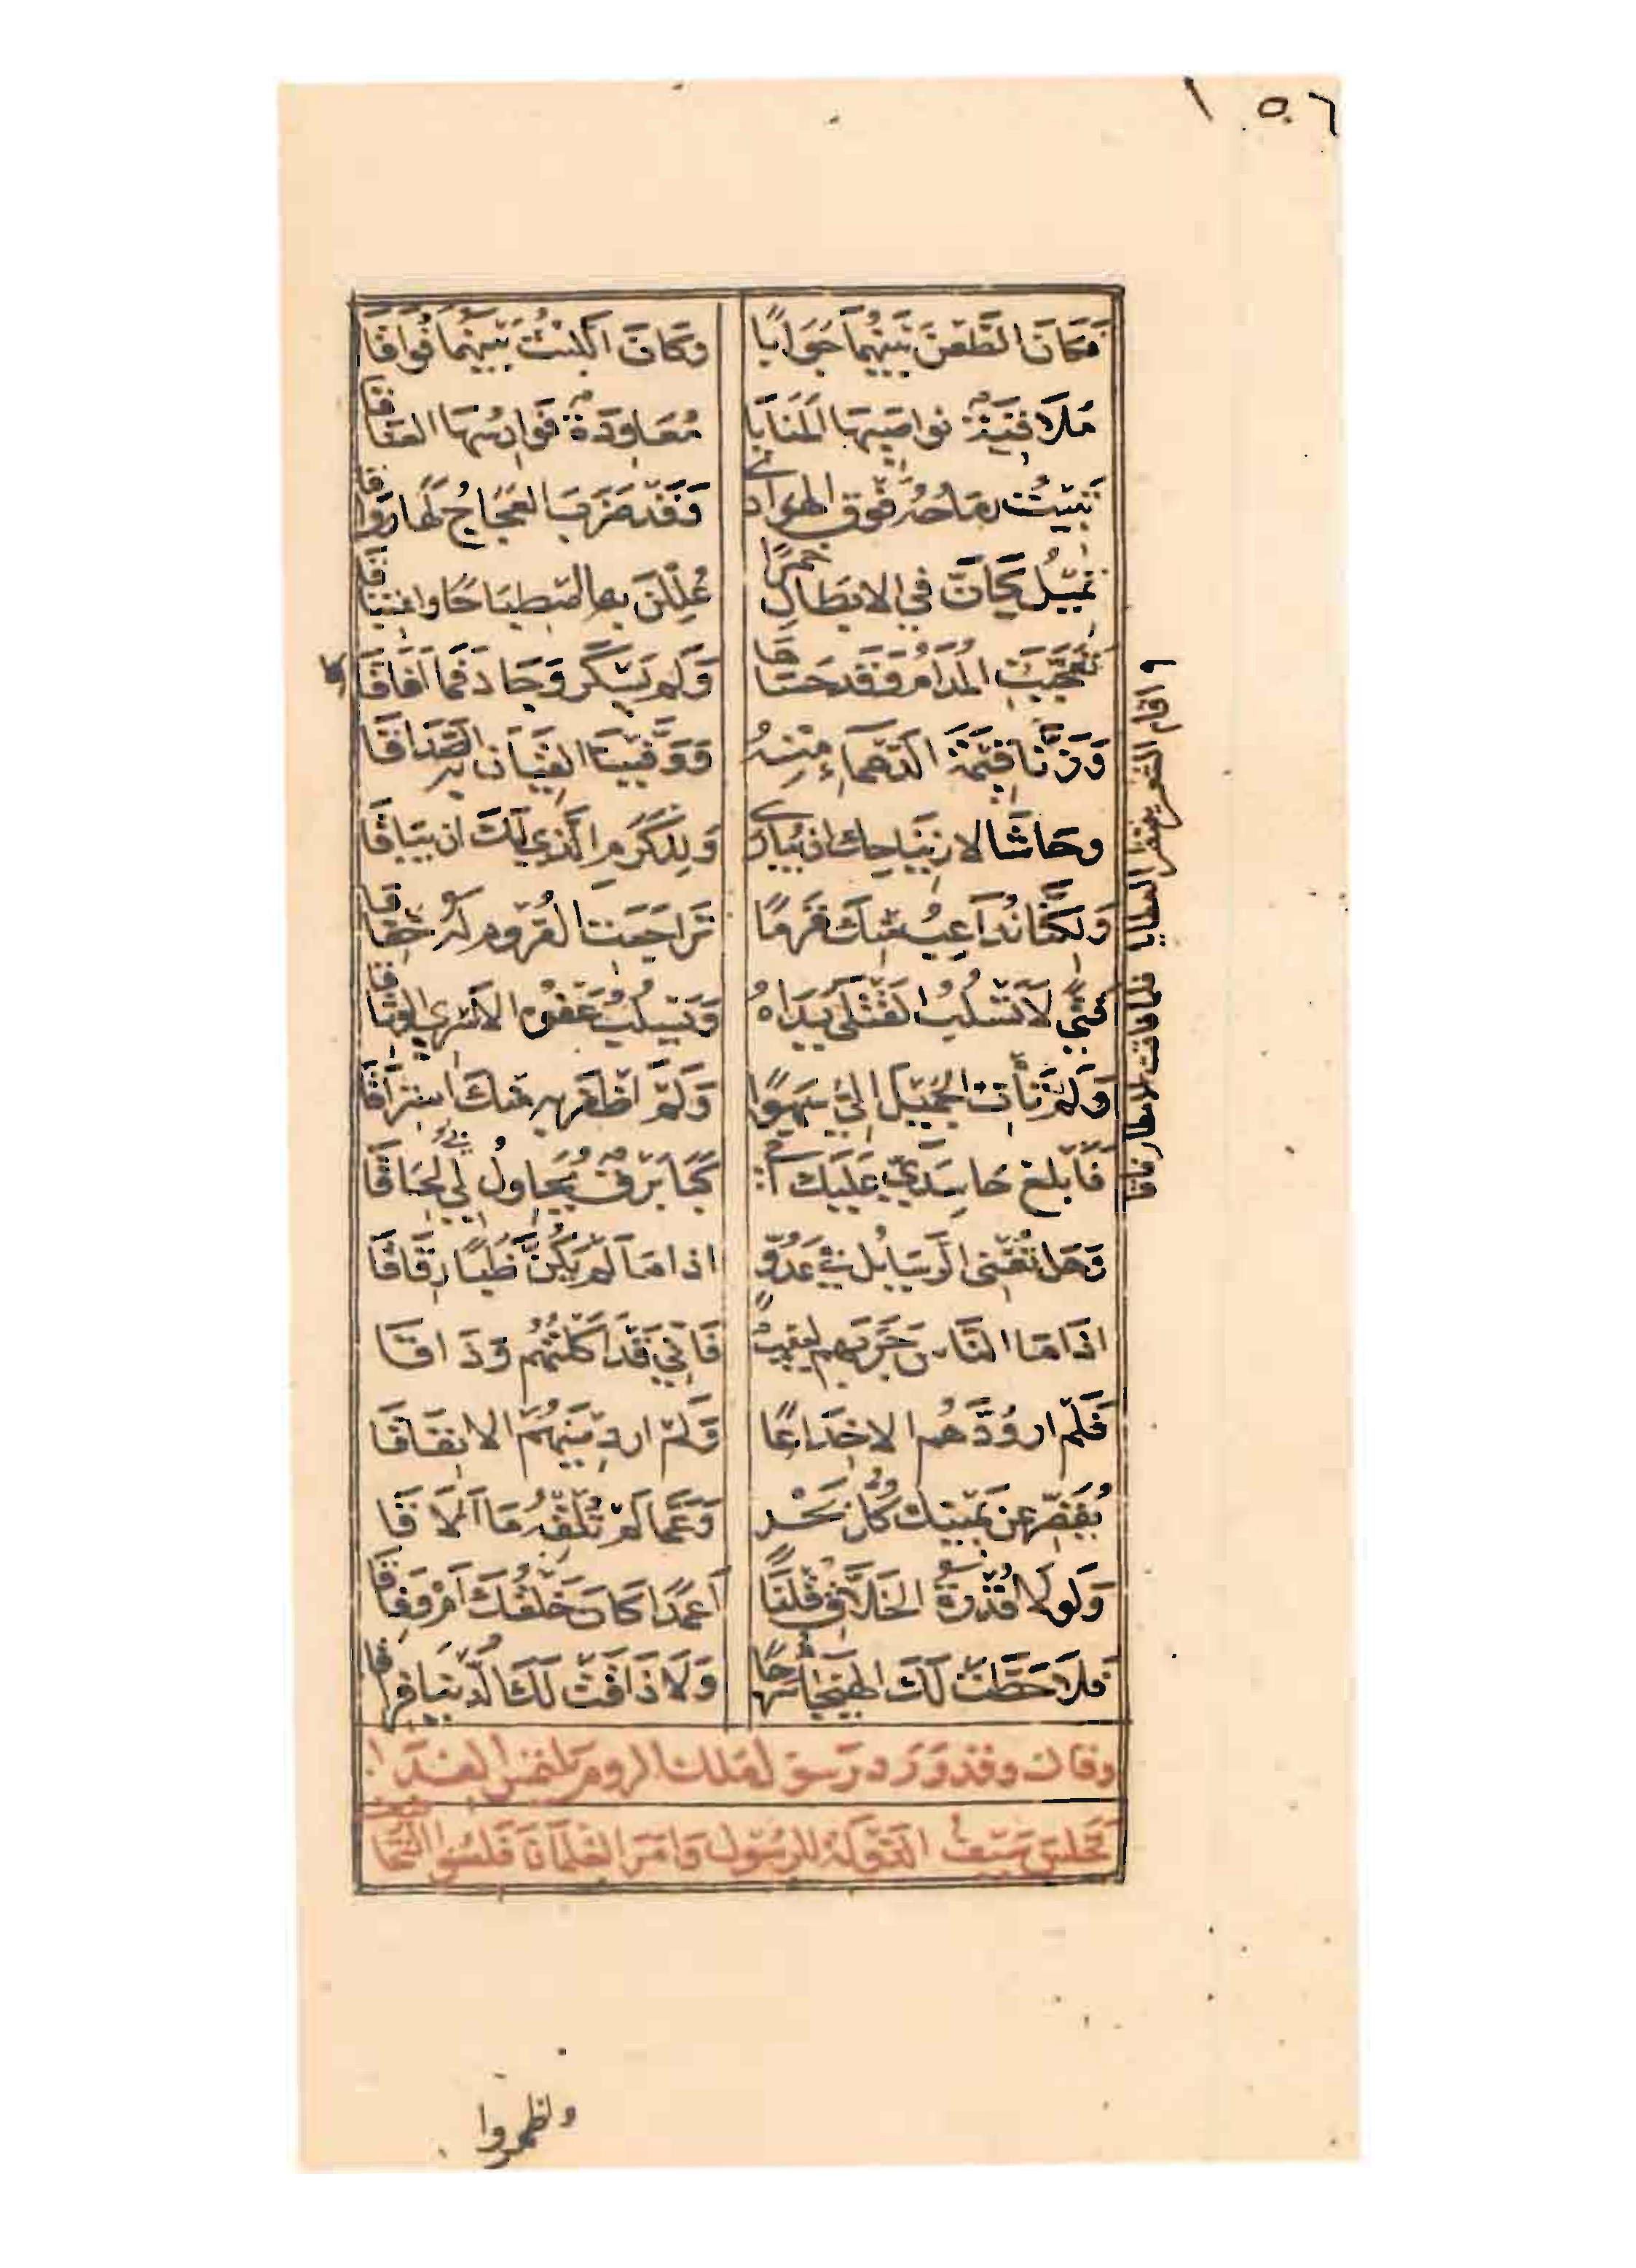 ١٥٦
فَكَانَ الطَّعْنَ بَيْنَهُمَا جَوَابًا وَكَانَ اللبْثُ بَيْنَهُمَا فُوَاقَا
مُلَاقِيَةً نواصِيهَا المَنَايَا مُعَاوِدَةً فَوَارِسُهَا العِنَاقَا
تَبِيْتُ رِمَاحُهُ فَوْقَ الهَوَادي وَقَدْ ضَرَبَ العَجَاجُ لَهَا رِوَاقَا
تَمِيْلُ كَانَّ في الابْطَالِ خَمْرًا عُلِلْنَ بها اصْطِبَاحًا واغتِبَاقَا
تَعَجَّبَتِ المُدَامُ وَقَدْ حَسَاهَا وَلَم يَسْكَر وَجَادَ فَمَا افَاقَا
وَزَنَّا قِيْمَةَ الدَّهْمَاءِ مِنْهُ وَوَفَّيْنَا القِيَانَ بِهِ الصَّدَاقَا
وحَاشَا لارتِيَاحِك ان يُبَارَى وَلِلْكَرَمِ الَّذِي لَكَ ان يُبَاقَا
وَلَكِنَّا نُدَاعِبُ مِنْكَ قَرْمًا تَرَاجَعَتِ القُرُومُ لَهُ حِقَاقَا
فَتًى لَا تَسْلُبُ القَتْلَى يَدَاهُ وَيَسْلُبُ عَفْوُه الاسْرى الوِثَاقَا
وَلَمْ تَأْتِ الجَمِيْلَ الَيَّ سَهْوًا وَلَمْ اظْفَر بِهِ مِنْكَ اسْتِرَاقَا
فَابْلِغْ حَاسِدِيَّ عَلَيْكَ اني كَبَا بَرْقٌ يُحَاوِلُ بِي لِحَاقَا
وَهَل تُغْنِي الرَسَايُل في عَدُوٍّ اذا مَا لَمْ يَكُنَّ ظُبًا رِقَاقَا
اذَا مَا النَّاسَ جَرَّبَهم لَبِيْبٌ فَانِّي قَدْ اكَلْتُهُم وَذَاقَا
فَلَمْ ار وُدَّهُم الا خِدَاعًا وَلَمْ ار دِيْنَهُمْ الا نِفَاقَا
يُقَصِّرُ عن يَمِيْنِكَ كُلُّ بَحْرٍ وَعَمَّا لَمْ تُلِقْهُ مَا الَاقَا
وَلَولَا قُدْرَةُ الخَلَّاقِ قُلْنَا اعَمْدًا كَانَ خَلْقُكَ امْ وِفَاقَا
فَلَا حَطَّتْ لَكَ الهَيْجَا سَرْجًا وَلَا ذَاقَتْ لَكَ الدُّنْيَا فِرَاقَا
وقال وقد وَرَد رَسول مَلك الروم يلتمس الفدا
فجلس سَيْف الدَوْلَة للرسول وَامَرَ الغلمَان فلبسُوا التجا
اقام الشعر ينتظر العطايا فلما فاقت الامطار فاقا
ولظهروا